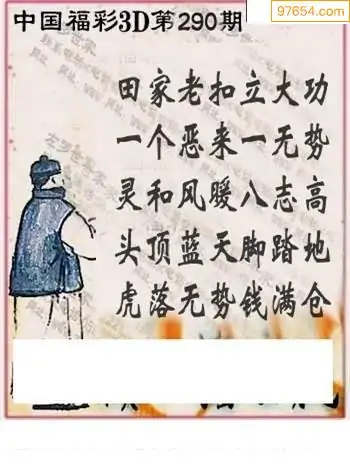 97654.com
中国福彩3D第290期
田家老扣立大功
一个恶来一无势
灵和风暖八志高
头顶蓝天脚踏地
虎落无势钱满仓